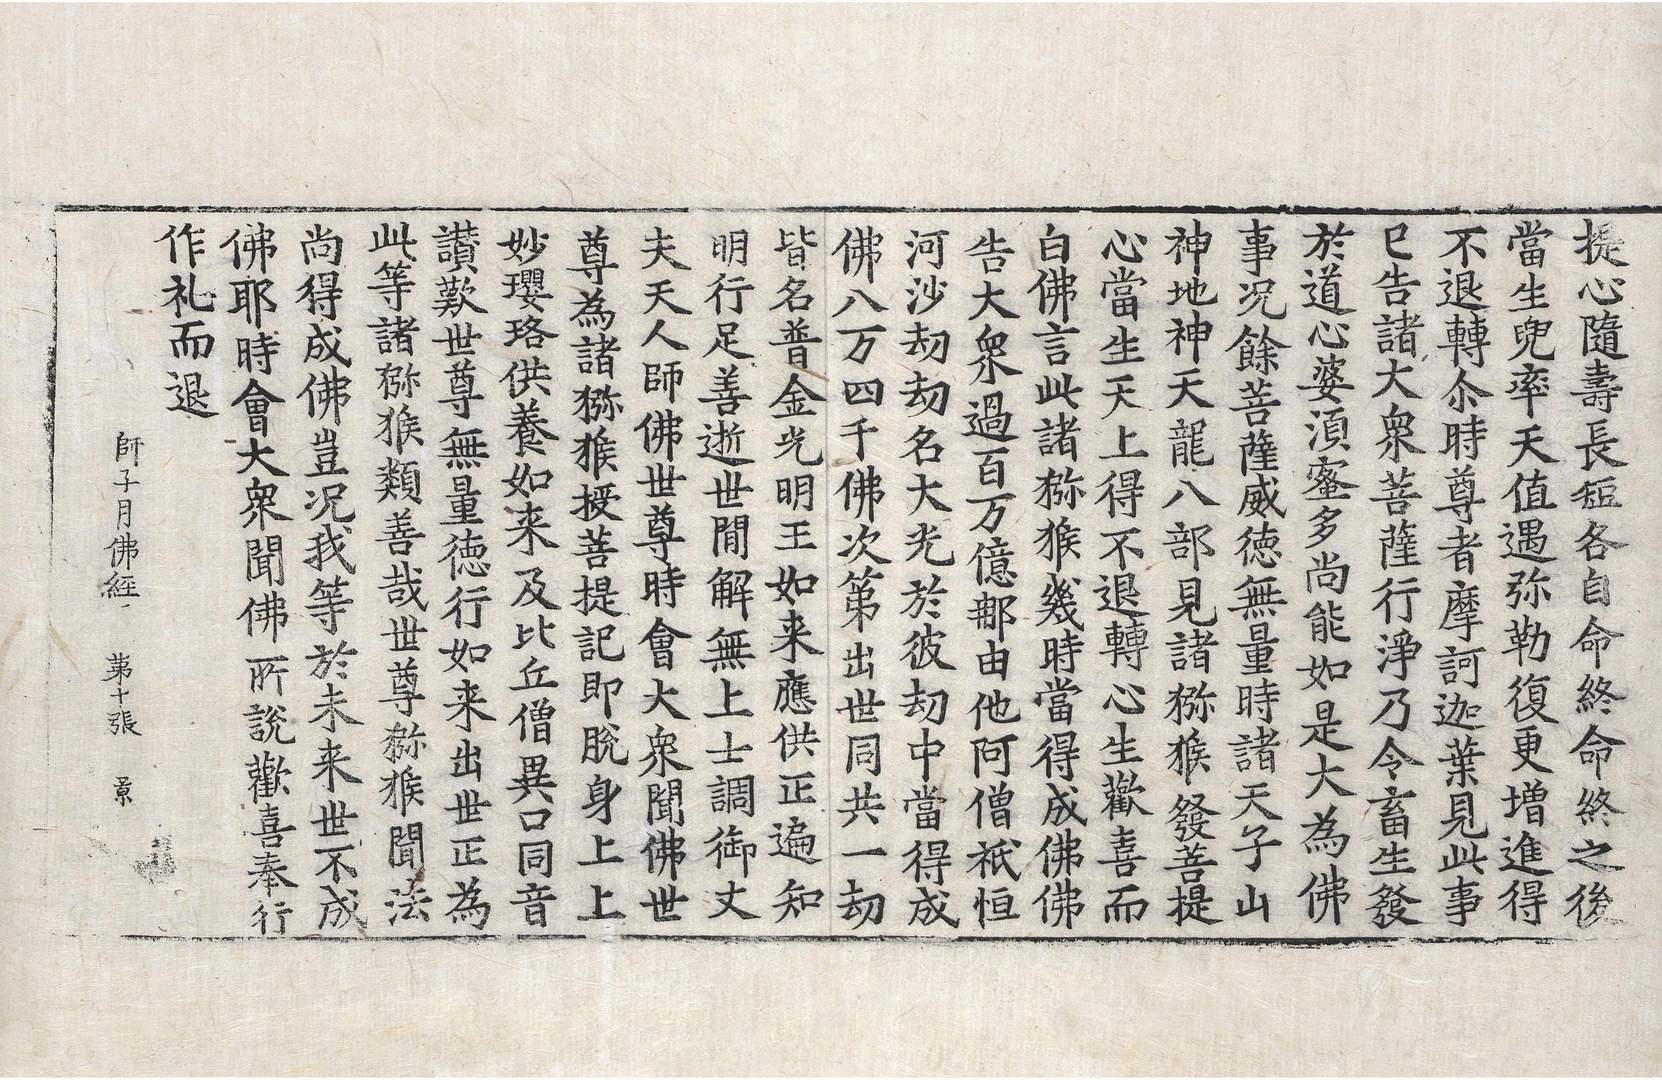 提心隨壽長短各自命終命終之後
當生兜率天值遇弥勒復更增進得
不退轉尒時尊者摩訶迦葉見此事
已告諸大衆菩薩行淨乃令畜生發
於道心婆湏蜜多尚能如是大為佛
事况餘菩薩威徳無量時諸天子山
神地神天龍八部見諸猕猴發菩提
心當生天上得不退轉心生歡喜而
白佛言此諸猕猴幾時當得成佛佛
告大衆過百万億那由他阿僧祇恒
河沙劫劫名大光於彼劫中當得成
佛八万四千佛次第出世同共一劫
皆名普金光明王如来應供正遍知
明行足善逝世間解無上士調御丈
夫天人師佛世尊時會大衆聞佛世
尊為諸猕猴授菩提記即脫身上上
妙瓔珞供養如来及比丘僧異口同音
讃歎世尊無量徳行如来出世正為
此等諸猕猴類善哉世尊猕猴聞法
尚得成佛豈况我等於未来世不成
佛耶時會大衆聞佛所說歡喜奉行
作礼而退
師子月佛經 第十張 景